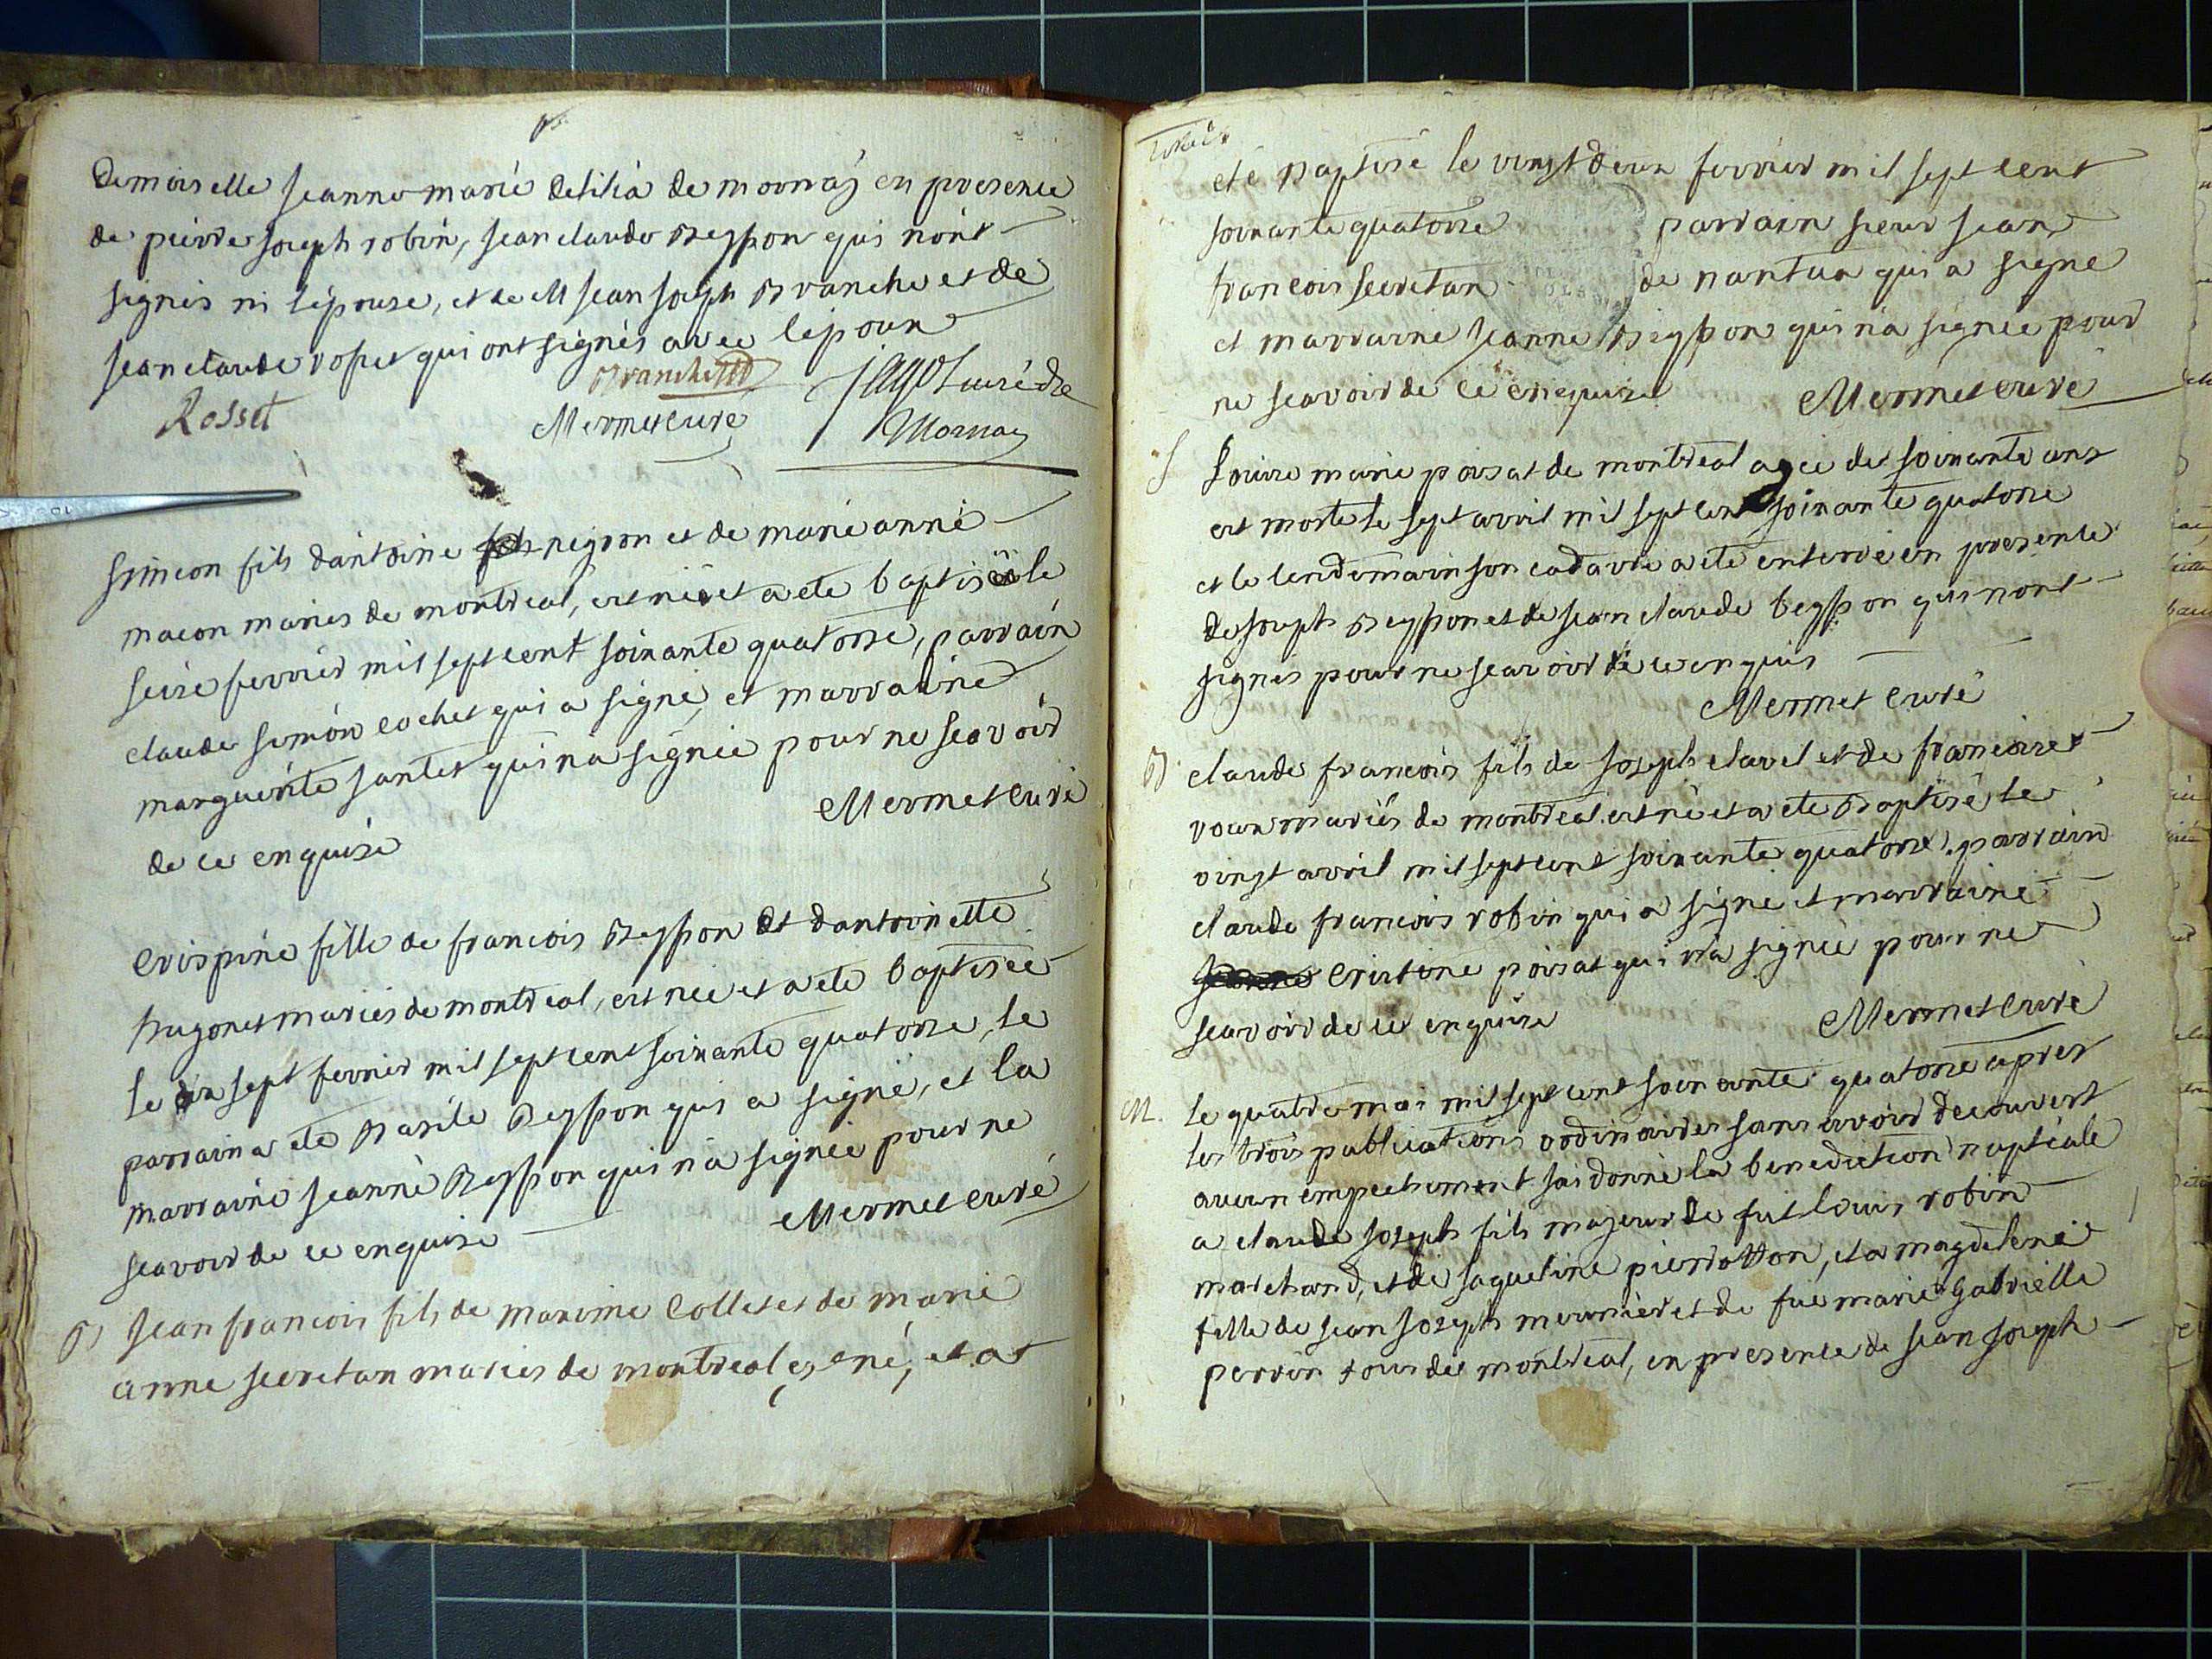 demoiselle jeanne marie delilia de mornay en presence
de pierre joseph robin, jean claude Beysson qui n'ont
signés ni l'epouse, et de M jean joseph Branche et de
jean claude roset qui ont signés avec l'epoux
Rosset
Branche
Mermet curé
jagot curé de
Mornay
simeon fils dantoine negron et de marie anne
macon mariés de montreal, est né et a ete baptisé le
seize fevrier mil sept cent soixante quatorze, parrain
claude simon cochet qui a signé, et marraine
marguerite jantet qui n'a signée pour ne scavoir
de ce enquise
Mermet curé
Crispine fille de francois Beysson et dantoinette
hugonet mariés de montreal, est née et a ete baptisée
le dix sept fevrier mil sept cent soixante quatorze, le
parrain a ete Basile Beysson qui a signé, et la
marraine jeanne Beysson qui n'a signée pour ne
scavoir de ce enquise
Mermet curé
B jean francois fils de maxime Collet et de marie
anne secretan mariés de montreal est né, et a
été Baptisé le vingt deux fevrier mil sept cent
soixante quatorze parrain sieur jean
francois secretan de nantua qui a signé
et marraine jeanne Beysson qui n'a signée pour
ne scavoir de ce enquise
Mermet curé
S Louise marie poisat de montreal agée de soixante ans
est morte le sept avril mil sept cent soixante quatorze
et le lendemain son cadavre a ete enterré en presence
de joseph Beysson et de jean claude beysson qui n'ont
signés pour ne scavoir de ce enquis
Mermet curé
B claude francois fils de joseph clavel et de francoise
roux mariés de montreal est né et a ete Baptisé le
vingt avril mil sept cent soixante quatorze, parrain
claude francois robin qui a signé et marraine
Cristine poisat qui n'a signée pour ne
scavoir de ce enquise
Mermet curé
M. le quatre mai mil sept cent soixante quatorze apres
les trois publications ordinaires sans avoir decouvert
aucun empechement jai donné la benediction nuptiale
a claude joseph fils majeur de fut louis robin
marchand, et de jaqueline pierrotton, et a magdelene
fille de jean joseph meunier et de fue marie gabrielle
perrin tous de montreal, en presence de jean joseph